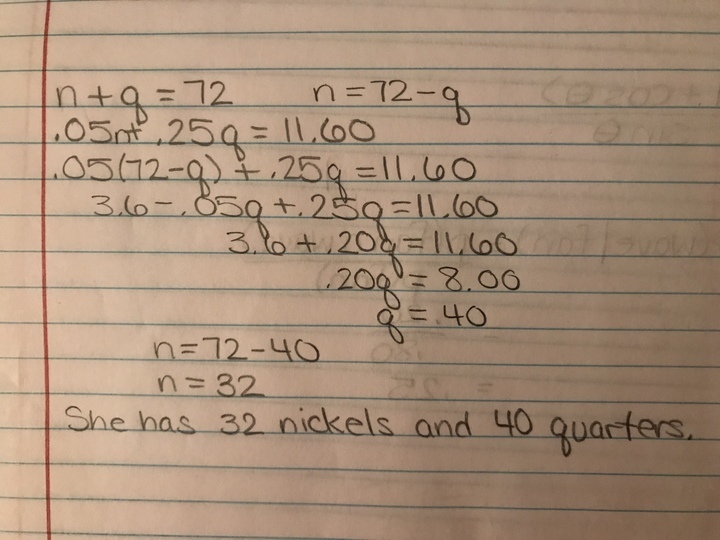 n + q = 72 n = 72 - q
.05n + .25q = 11.60
.05(72-q) + .25q = 11.60
3.6 - .05q + .25q = 11.60
3.6 + .20q = 11.60
.20q = 8.00
q = 40
n = 72 - 40
n = 32
She has 32 nickels and 40 quarters.